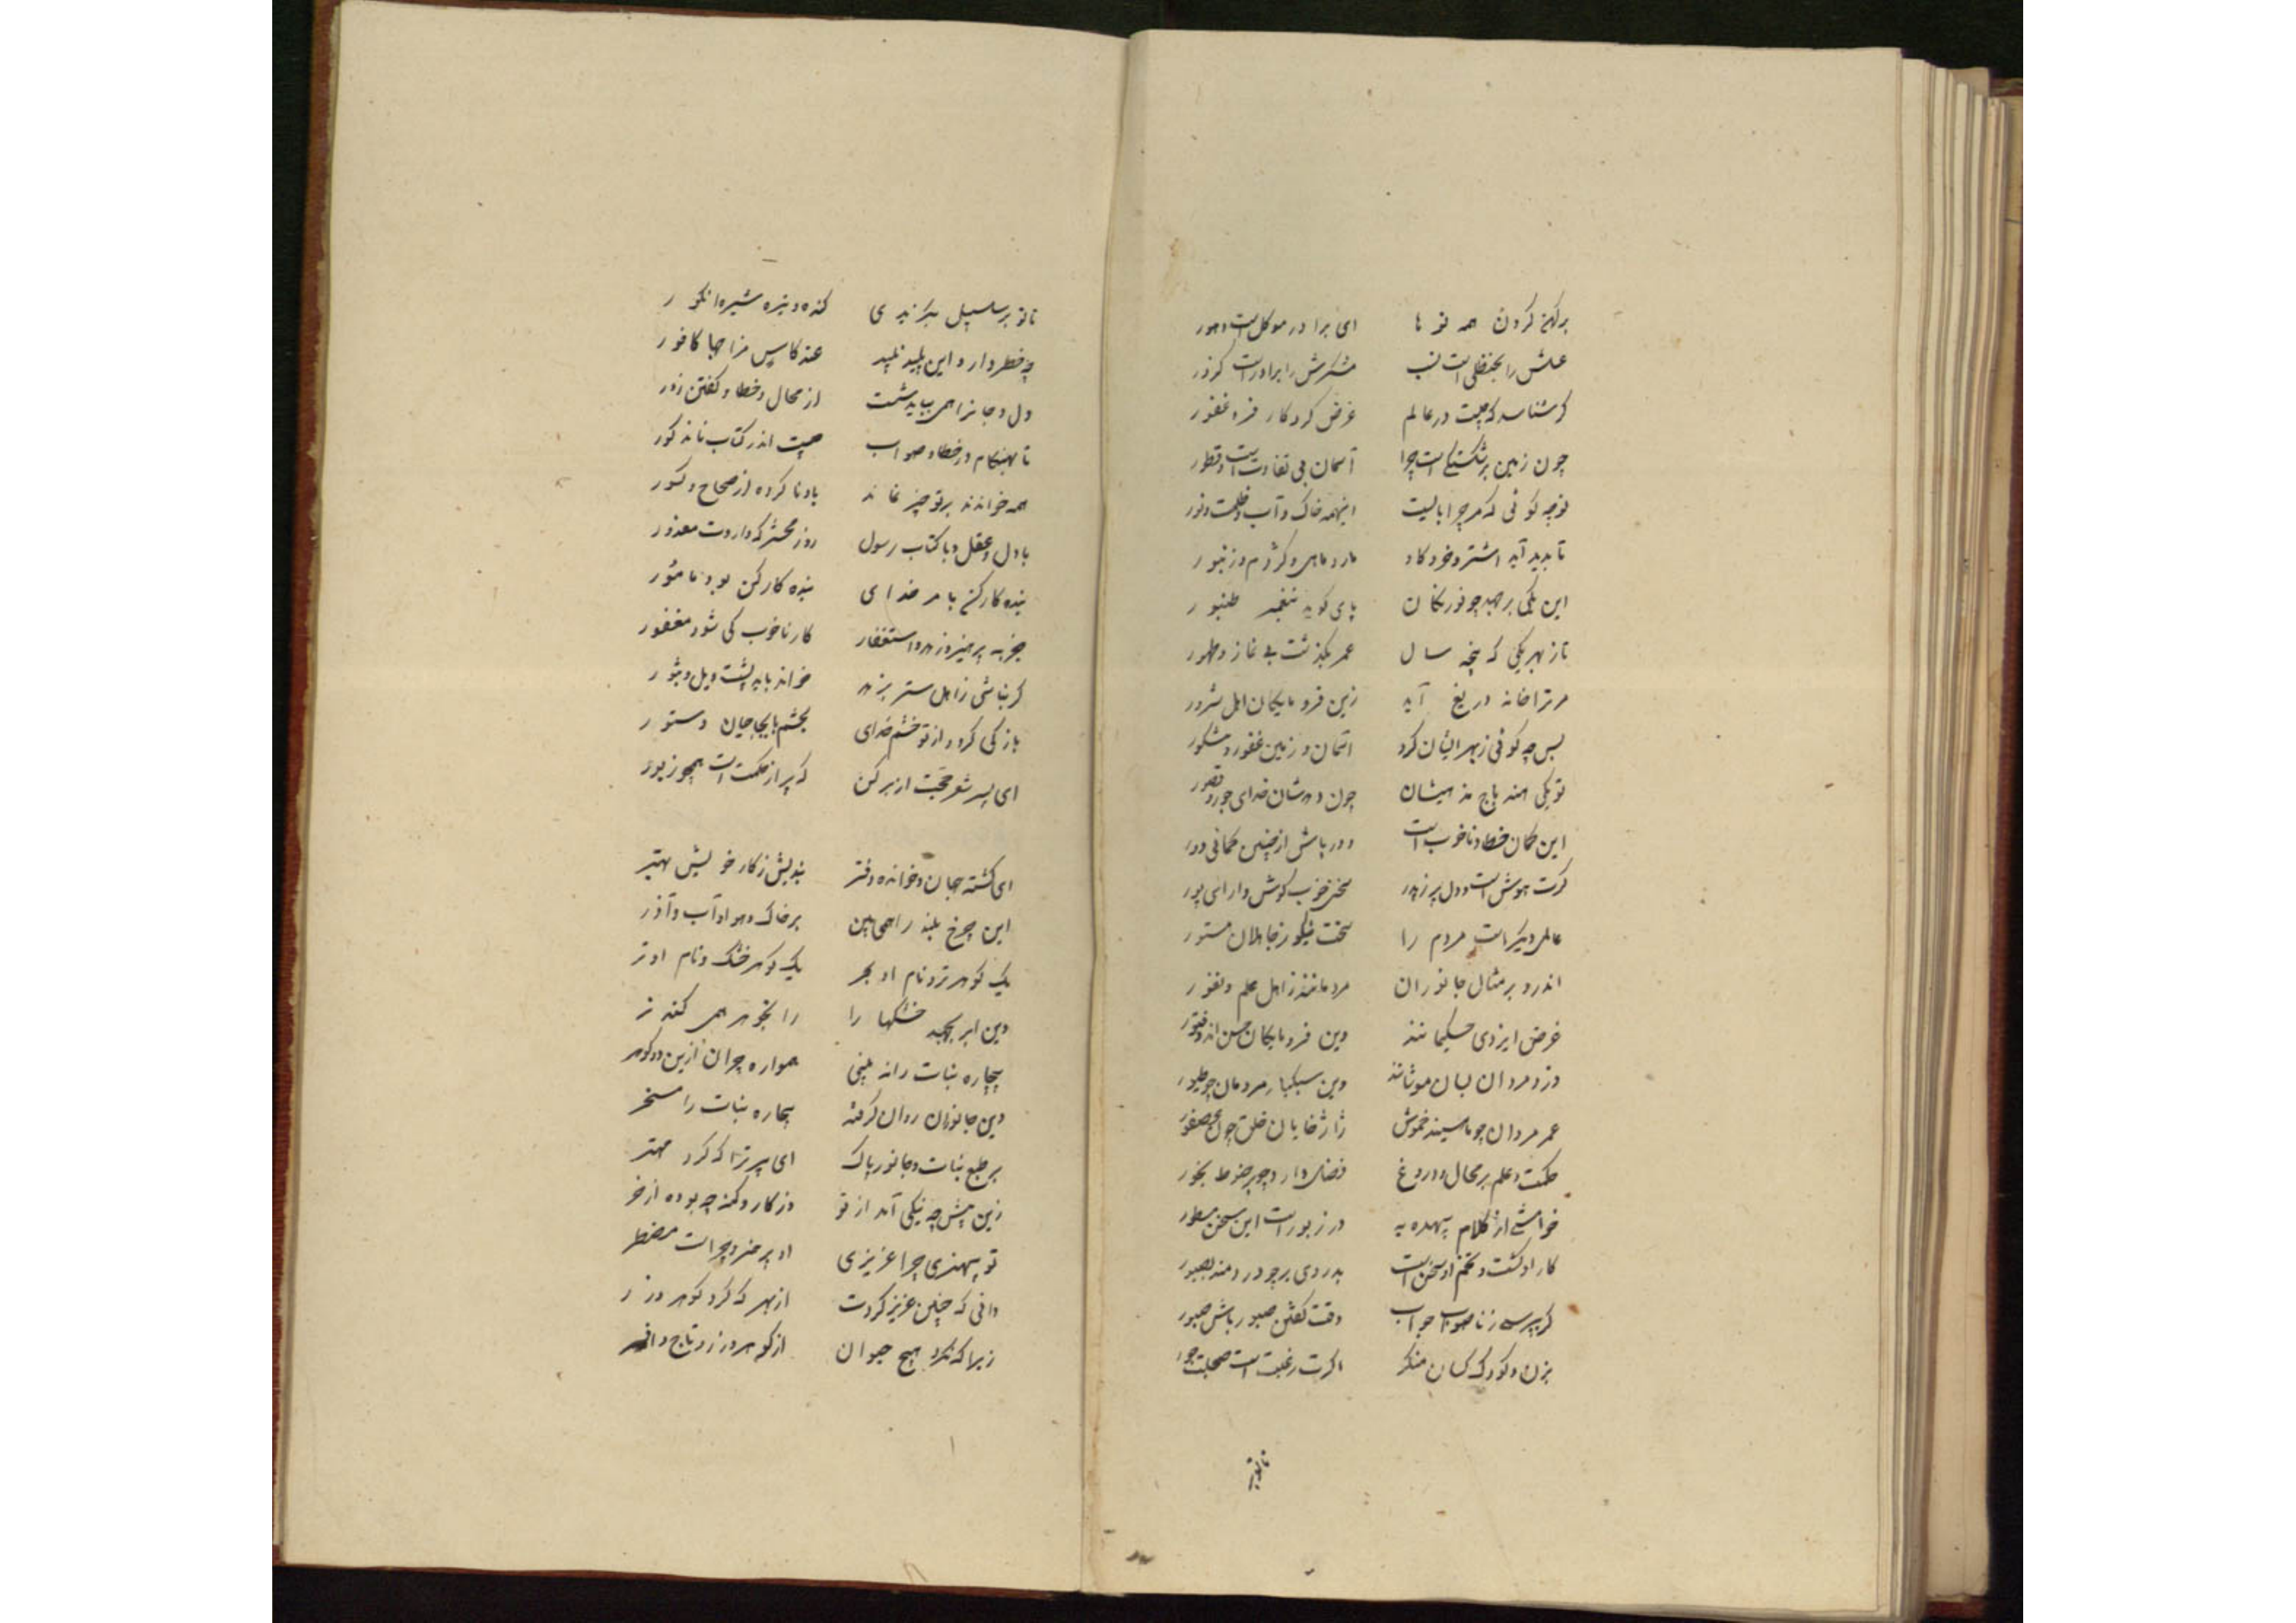 برکهن کردن همه نو ها ای برادر موکل است دهور
عسلش را بحنظلی است نسب شکرش را برادر است کزر
کر شناسد که چیست در عالم غرض کردکار فرد غفور
چون زمین بر شکستگی است چرا آسمان بی تفاوت است و فطور
نوچه کوئی که مر چرا بایست اینهمه خاک و آب و ظلمت و نور
تا پدید آید اشتر و خر و کاو مار و ماهی و کژدم و زنبور
این یکی برجهد چو بوزنکان پای کوبد بنغمه طنبور
تا ز بهر یکی که پنجه سال عمر بگذشت بی نماز و طهور
مر ترا خانه دریغ آید زین فرومایکان اهل شرور
پس چه کوئی ز بهر ایشان کرد آسمان و زمین غفور و شکور
تو یکی نه باج نه ایشان چون دهدشان خدای حور و قصور
این کمان خطا و ناخوب است دور باش از چنین کمانی دور
کرت هوش است و دل پر زهر سخن خوب کوش دار ای پور
عالمی دیکر است مردم را سخت نیکو ز جاهلان مستور
اندر و بر مثال جانوران مردمانند ز اهل علم و نفور
غرض ایزدی حکیمانند وین فرومایکان خس اند و فتور
دزد مردان بسان موشانند وین سبکبار مردمان چو طیور
عمر مردان چو مار سینه خموش ژاژخایان خلق چون عصفور
حکمت و علم بر محال و دروغ فضل دارد چو بر حنوط بخور
خواشی از کلام بیهده به در زبور است این سخن مسطور
کار او کشت و تخم او سخن است بدروی بر چو در دمند بصور
کر بپرسد ز ناصواب جواب وقت گفتن صبور باش صبور
بزن و کودک کسان منگر اکرت رغبت است صحبت حور
تا نو بر
تا نو بر سلسبیل بکزیدی کنده و تیره شیره انکور
چه خطر دارد این پلید نبید عند کاس مزاجها کافور
دل و جانرا همی بباید شست از محال و خطا و گفتن زور
تا بهنکام در خطا و صواب چیست اندر کتاب نامذکور
همه خواندند بر تو چیز نماند یادنا کرده از صحاح و کسور
با دل و عقل و با کتاب رسول روز محشر که داردت معذور
بنده کارکنم بامر خدای بنده کارکن بود مأمور
جز به پرهیز و زهد و استغفار کار ناخوب کی شود مغفور
کر نباشی ز اهل ستر بزهد خواند باید بسیت ویل و ثبور
باز کی کردد از تو خشم خدای بحشم یا بحاجبان و ستور
ای پسر شعر حجت از بر کن که پر از حکمت است همچو زبور
ای کشته جهان و خوانده دفتر بندیش ز کار خویش بهتر
این چرخ بلند را همی بین بر خاک و هوا و آب و آذر
یک کوهر تر و نام او بحر یک کوهر خشک و نام او بر
وین ابر بجهد خشکها را زا بجوهر همی کند تر
بیچاره نبات را نه بینی همواره جوان ازین دو کوهر
وین جانوران روان کرفته بیچاره نبات را مسخر
بر طبع نبات و جانور پاک ای پیر ترا که کرد مهتر
زین پیش چه نیکی آمد از تو وز کاو کنه چه بوده از خر
تو بیهنری چرا عزیزی او بی هنر و چراست مضطر
دانی که چنین عزیز کردت از بهر که کرد کوهر و زر
زیرا که نکرد هیچ حیوان از کوهر و زر و تاج و افسر